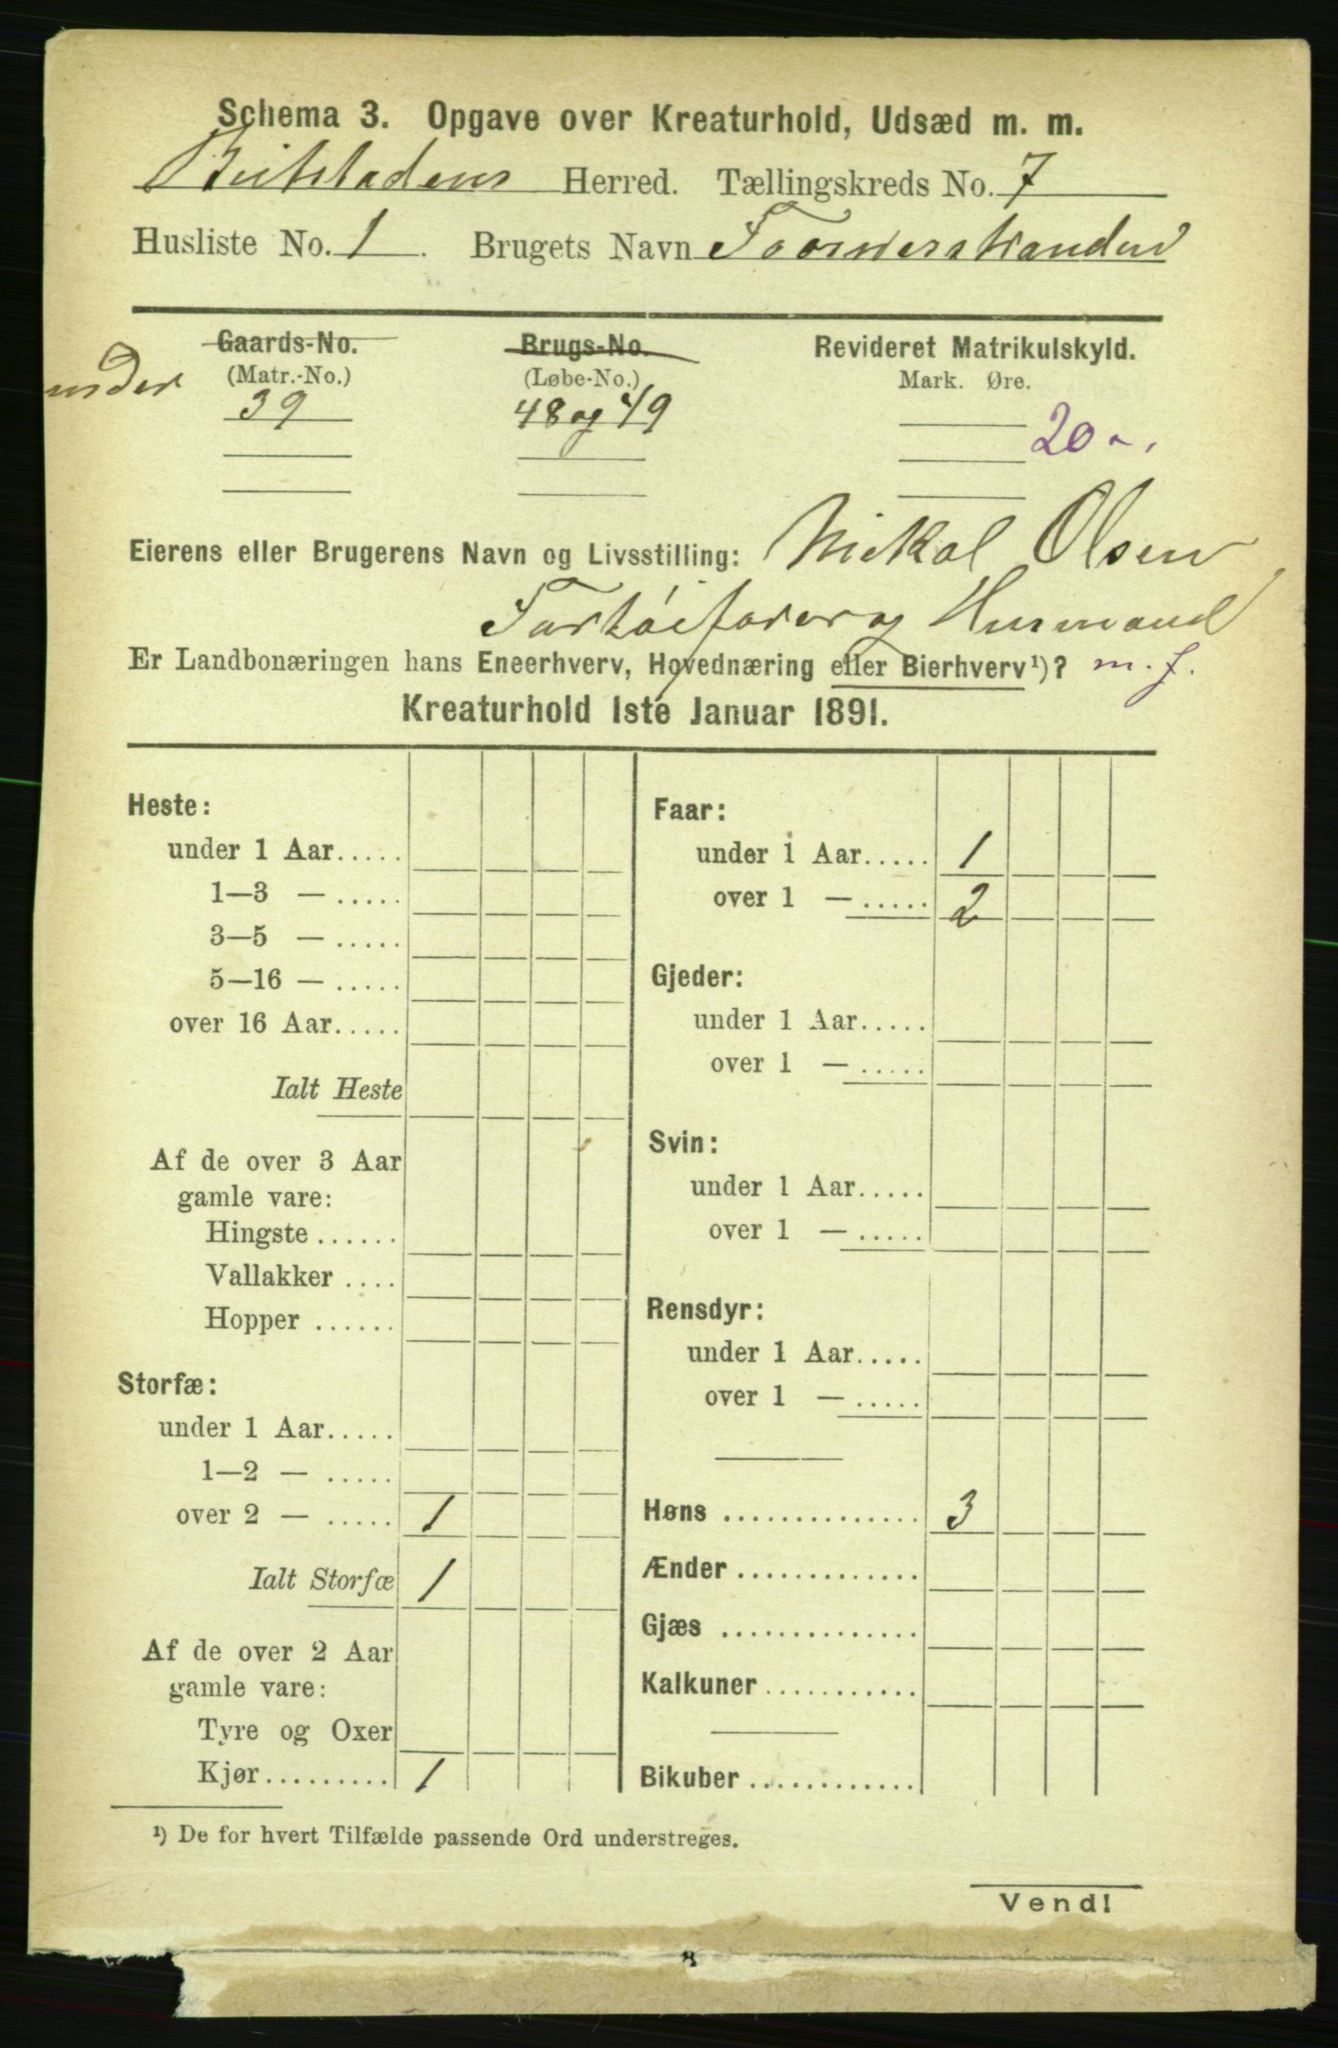 Schema 3. Opgave over Kreaturhold, Udsæd m. m.
Beitstadens Herred. Tællingskreds No. 7
Husliste No. 1. Brugets Navn
Gaards-No. Brugs-No. Revideret Matrikulskyld.
under (Matr.-No.) (Løbe-No.) Mark. Øre.
39 48 og 49
20
Eierens eller Brugerens Navn og Livsstilling: Nikol Olsen
Fartøifører og Husmand
Er Landbonæringen hans Eneerhverv, Hovednæring eller Bierhverv¹)? m. f.
Kreaturhold 1ste Januar 1891.
Heste:
under 1 Aar.....
1—3 — .....
3—5 — .....
5—16 — .....
over 16 Aar.....
Ialt Heste
Af de over 3 Aar
gamle vare:
Hingste ......
Vallakker ....
Hopper ......
Storfæ:
under 1 Aar.....
1—2 — .....
over 2 — ..... 1
Ialt Storfæ 1
Af de over 2 Aar
gamle vare:
Tyre og Oxer
Kjør......... 1
Faar:
under 1 Aar..... 1
over 1 — ..... 2
Gjeder:
under 1 Aar.....
over 1 — .....
Svin:
under 1 Aar.....
over 1 — .....
Rensdyr:
under 1 Aar.....
over 1 — .....
Høns .............. 3
Ænder .............
Gjæs ..............
Kalkuner ...........
Bikuber ............
¹) De for hvert Tilfælde passende Ord understreges.
Vend!